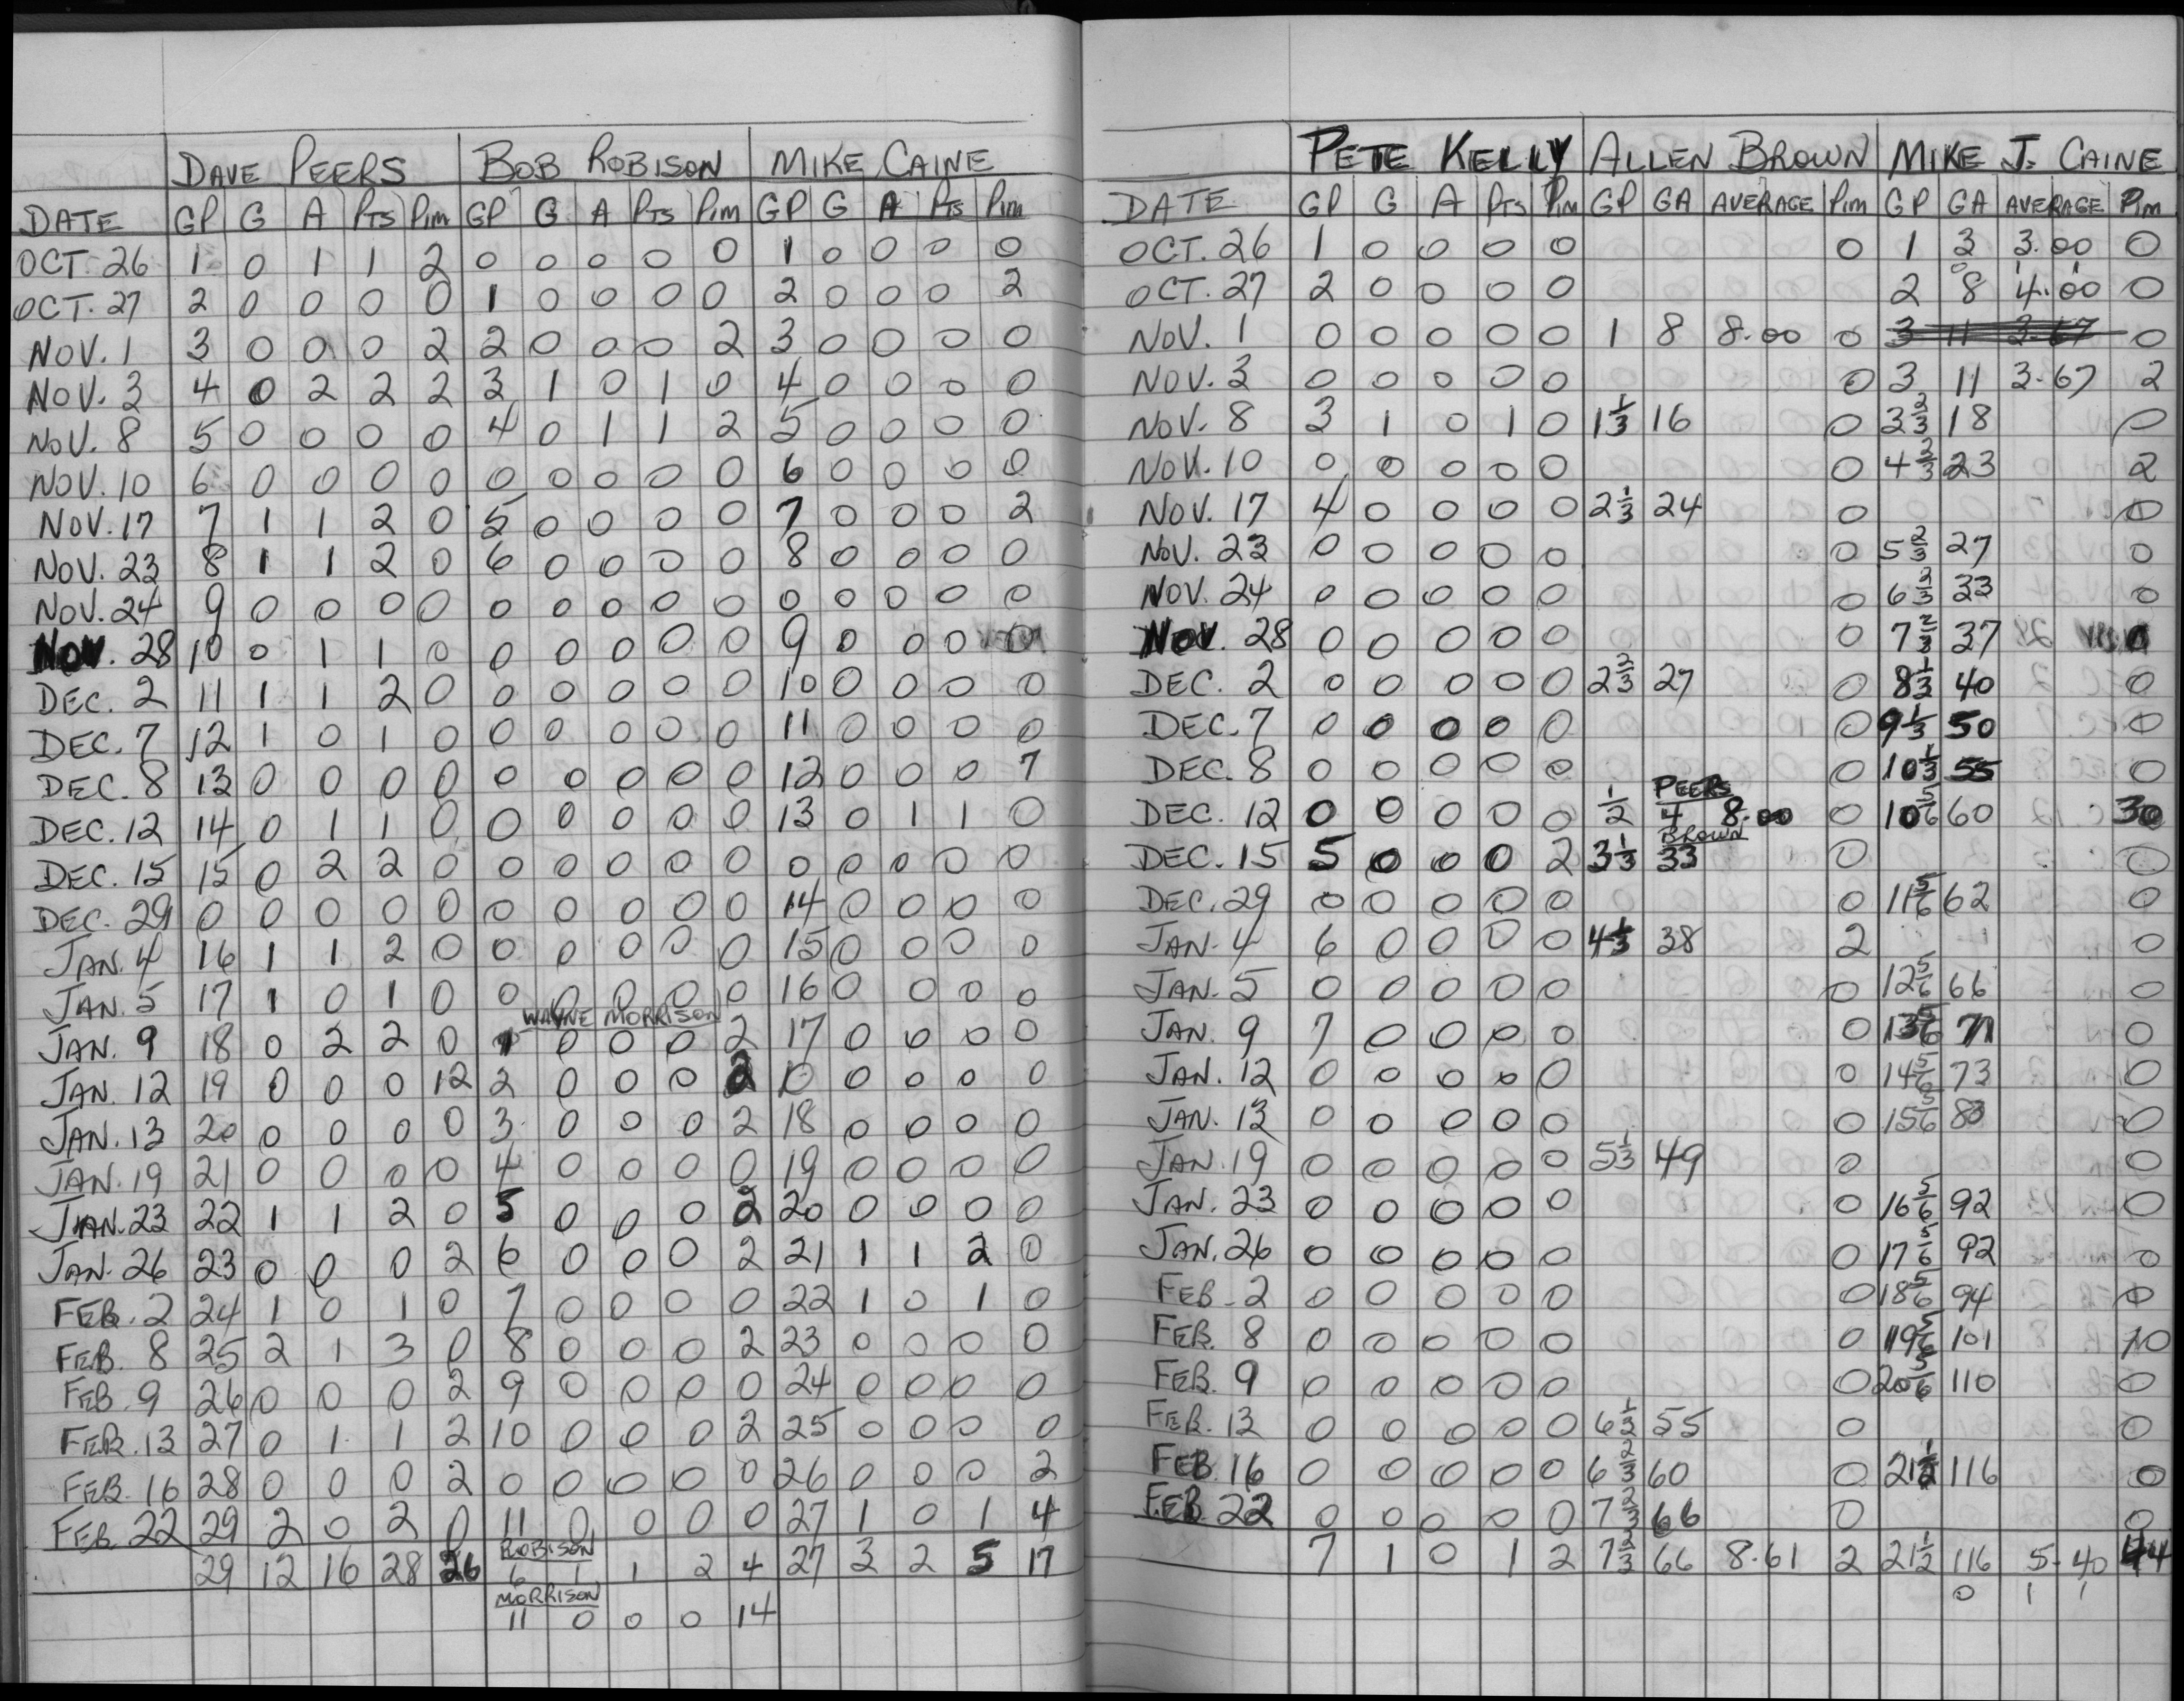 DAVE PEERS BOB ROBISON MIKE CAINE
DATE GP G A PTS PIM GP G A PTS PIM GP G A PTS PIM
OCT. 26 1 0 1 1 2 0 0 0 0 0 1 0 0 0 0
OCT. 27 2 0 0 0 0 1 0 0 0 0 2 0 0 0 2
NOV. 1 3 0 0 0 2 2 0 0 0 2 3 0 0 0 0
NOV. 3 4 0 2 2 2 3 1 0 1 0 4 0 0 0 0
NOV. 8 5 0 0 0 0 4 0 1 1 2 5 0 0 0 0
NOV. 10 6 0 0 0 0 0 0 0 0 0 6 0 0 0 0
NOV. 17 7 1 1 2 0 5 0 0 0 0 7 0 0 0 2
NOV. 23 8 1 1 2 0 6 0 0 0 0 8 0 0 0 0
NOV. 24 9 0 0 0 0 0 0 0 0 0 0 0 0 0 0
NOV. 28 10 0 1 1 0 0 0 0 0 0 9 0 0 0 0
DEC. 2 11 1 1 2 0 0 0 0 0 0 10 0 0 0 0
DEC. 7 12 1 0 1 0 0 0 0 0 0 11 0 0 0 0
DEC. 8 13 0 0 0 0 0 0 0 0 0 12 0 0 0 7
DEC. 12 14 0 1 1 0 0 0 0 0 0 13 0 1 1 0
DEC. 15 15 0 2 2 0 0 0 0 0 0 0 0 0 0 0
DEC. 29 0 0 0 0 0 0 0 0 0 0 14 0 0 0 0
JAN. 4 16 1 1 2 0 0 0 0 0 0 15 0 0 0 0
JAN. 5 17 1 0 1 0 0 0 0 0 0 16 0 0 0 0
WAYNE MORRISON
JAN. 9 18 0 2 2 0 1 0 0 0 2 17 0 0 0 0
JAN. 12 19 0 0 0 12 2 0 0 0 2 0 0 0 0 0
JAN. 13 20 0 0 0 0 3 0 0 0 2 18 0 0 0 0
JAN. 19 21 0 0 0 0 4 0 0 0 0 19 0 0 0 0
JAN. 23 22 1 1 2 0 5 0 0 0 2 20 0 0 0 0
JAN. 26 23 0 0 0 2 6 0 0 0 2 21 1 1 2 0
FEB. 2 24 1 0 1 0 7 0 0 0 0 22 1 0 1 0
FEB. 8 25 2 1 3 0 8 0 0 0 2 23 0 0 0 0
FEB. 9 26 0 0 0 2 9 0 0 0 0 24 0 0 0 0
FEB. 13 27 0 1 1 2 10 0 0 0 2 25 0 0 0 0
FEB. 16 28 0 0 0 2 0 0 0 0 0 26 0 0 0 2
FEB. 22 29 2 0 2 0 11 0 0 0 0 27 1 0 1 4
ROBISON
29 12 16 28 26 6 1 1 2 4 27 3 2 5 17
MORRISON
11 0 0 0 14
PETE KELLY ALLEN BROWN MIKE J. CAINE
DATE GP G A PTS PIM GP GA AVERAGE PIM GP GA AVERAGE PIM
OCT. 26 1 0 0 0 0 0 1 3 3.00 0
OCT. 27 2 0 0 0 0 2 8 4.00 0
NOV. 1 0 0 0 0 0 1 8 8.00 0 3 11 3.67 0
NOV. 3 0 0 0 0 0 0 3 11 3.67 2
NOV. 8 3 1 0 1 0 1 1/3 16 0 3 2/3 18 0
NOV. 10 0 0 0 0 0 0 4 2/3 23 2
NOV. 17 4 0 0 0 0 2 1/3 24 0 0
NOV. 23 0 0 0 0 0 0 5 2/3 27 0
NOV. 24 0 0 0 0 0 0 6 2/3 33 0
NOV. 28 0 0 0 0 0 0 7 2/3 37 0
DEC. 2 0 0 0 0 0 2 2/3 27 0 8 1/3 40 0
DEC. 7 0 0 0 0 0 0 9 1/3 50 0
DEC. 8 0 0 0 0 0 0 10 1/3 55 0
PEERS
DEC. 12 0 0 0 0 0 1/2 4 8.00 0 10 5/6 60 30
BROWN
DEC. 15 5 0 0 0 2 3 1/3 33 0 0
DEC. 29 0 0 0 0 0 0 11 5/6 62 0
JAN. 4 6 0 0 0 0 4 1/3 38 2 0
JAN. 5 0 0 0 0 0 0 12 5/6 66 0
JAN. 9 7 0 0 0 0 0 13 5/6 71 0
JAN. 12 0 0 0 0 0 0 14 5/6 73 0
JAN. 13 0 0 0 0 0 0 15 5/6 83 0
JAN. 19 0 0 0 0 0 5 1/3 49 0 0
JAN. 23 0 0 0 0 0 0 16 5/6 92 0
JAN. 26 0 0 0 0 0 0 17 5/6 92 0
FEB. 2 0 0 0 0 0 0 18 5/6 94 0
FEB. 8 0 0 0 0 0 0 19 5/6 101 10
FEB. 9 0 0 0 0 0 0 20 5/6 110 0
FEB. 13 0 0 0 0 0 6 1/3 55 0 0
FEB. 16 0 0 0 0 0 6 2/3 60 0 21 1/2 116 0
FEB. 22 0 0 0 0 0 7 2/3 66 0 0
7 1 0 1 2 7 2/3 66 8.61 2 21 1/2 116 5.40 44
0 1 1